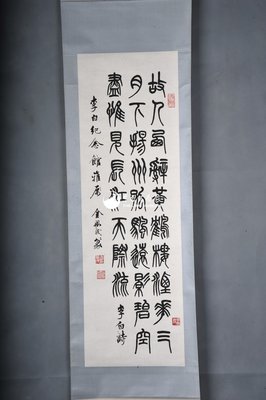 故人西辭黃鶴樓煙華三
月下揚州孤帆遠影碧空
盡惟見長江天際流 李白詩
李白紀念館雅屬 金